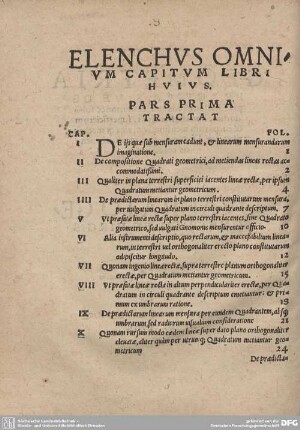 ELENCHVS OMNI-
VM CAPITVM LIBRI
HVIVS.
PARS PRIMA
TRACTAT
CAP. FOL.
I DE ijs quæ sub mensuram cadunt, & linearum mensurandarum
imaginatione, 1
II De compositione Quadrati geometrici, ad metiendas lineas rectas ac
commodatissimi. 2
III Qualiter in plana terrestri superficie iacentes lineæ rectæ, per ipsum
Quadratum metiantur geometricum. 4
IIII De prædictarum linearum in plano terrestri constitutarum mensura,
per vulgatum Quadratum in circuli quadrante descriptum, 7
V Vt præfatæ lineæ rectæ super plano terrestri iacentes, sine Quadrato
geometrico, sed vulgari Gnomonis mensurentur officio 10
VI Alia instrumenti descriptio, quo rectarum, & inaccessibilium linea-
rum, interuallum vel orthogonaliter erectio plano constitutarum
adipiscitur longitudo, 12
VII Quonam ingenio lineæ rectæ, supra terrestre planum orthogonaliter
erectæ, per Quadratum metiantur geometricum. 15
VIII Vt præfatæ lineæ rectæ in altum perpendiculariter erectæ, per Qua-
dratum in circuli quadrante descriptum emetiantur: & pri-
mum ex vmbrarum ratione. 19
IX De prædictarum linearum mensura per eundem Quadrantem, absque
vmbrarum, sed radiorum visualium consideratione 21
X Quonam rursum modo eædem lineæ super dato plano orthogonaliter
eleuatæ, aliter quàm per vmbras, Quadratum metiantur geo
metricum 24
De prædictar